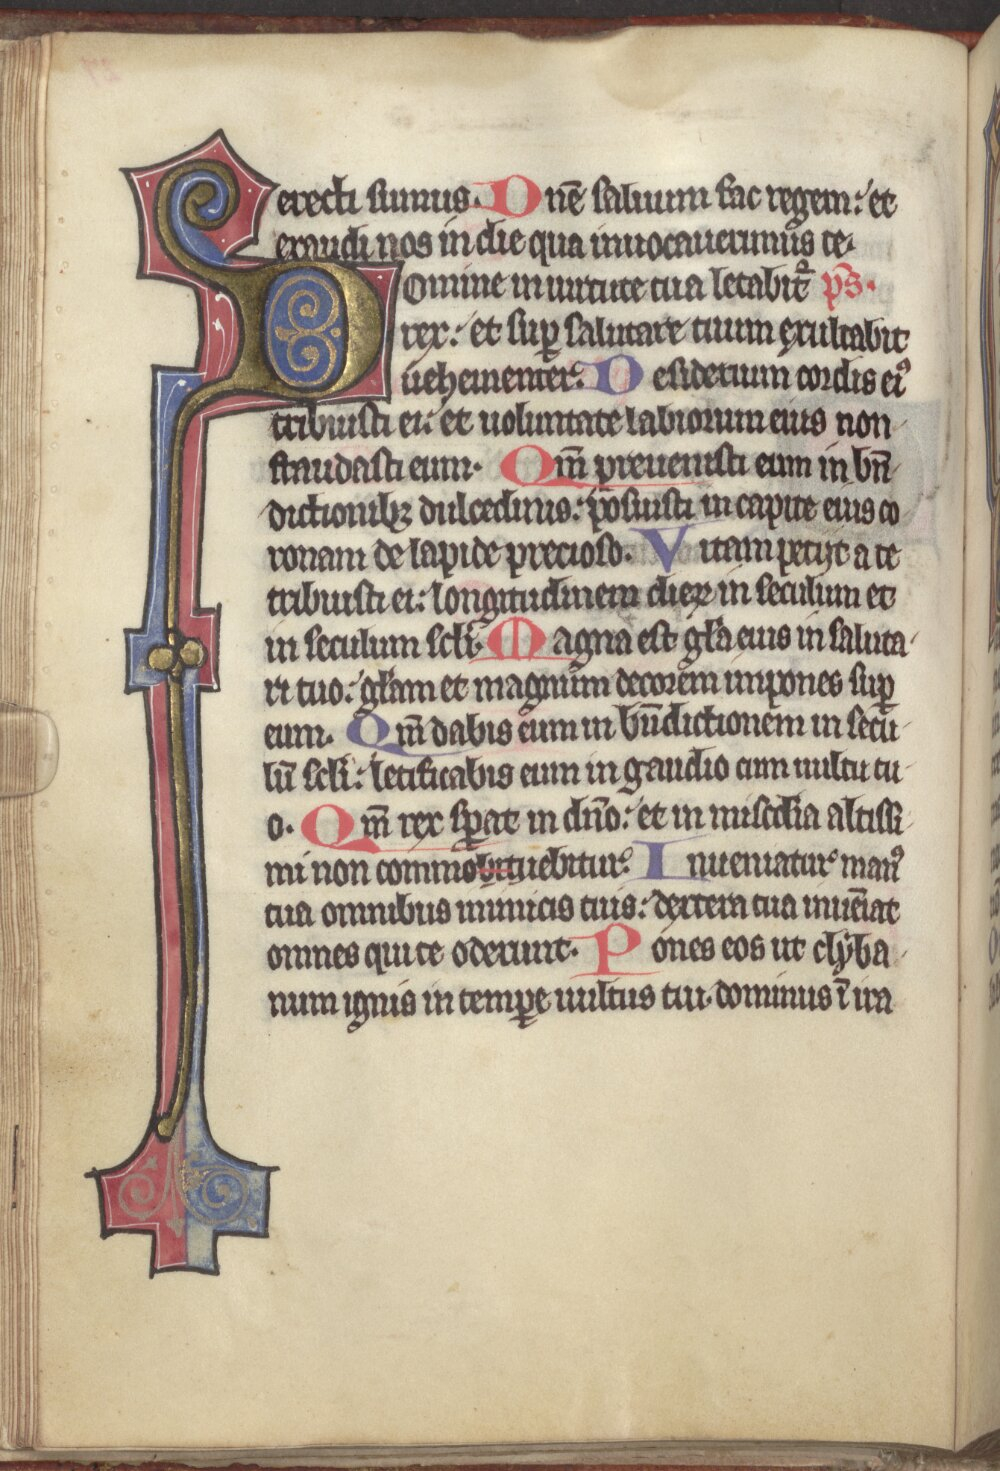 erecti sumus. Dnē saluum fac regem: et
exaudi nos in die qua inuocauerimus te.
Domine in uirtute tua letabit᷑ ps̄.
rex: et suꝑ salutare tuum exultabit
uehementer. Desiderium cordis eiꝰ
tribuisti ei: et uoluntate labiorum eius non
fraudasti eum. Qm̄ preuenisti eum in bn̄
dictionibꝫ dulcedinis: posuisti in capite eius co
ronam de lapide precioso. Vitam petijt a te
tribuisti ei: longitudinem dieꝝ in seculum et
in seculum scl̄i. Magna est gl̄a eius in saluta
ri tuo: gl̄am et magnum decorem impones suꝑ
eum. Qm̄ dabis eum in bn̄dictionem in secu
lū scl̄i: letificabis eum in gaudio cum uultu tu
o. Qm̄ rex sꝑat in dn̄o: et in mis̄cdia altissi
mi non commobituebitur. Inueniatur manꝰ
tua omnibus inimicis tuis: dextera tua inueniat
omnes qui te oderunt. Pones eos ut clyba
num ignis in tempore uultus tui. dominus ī ira